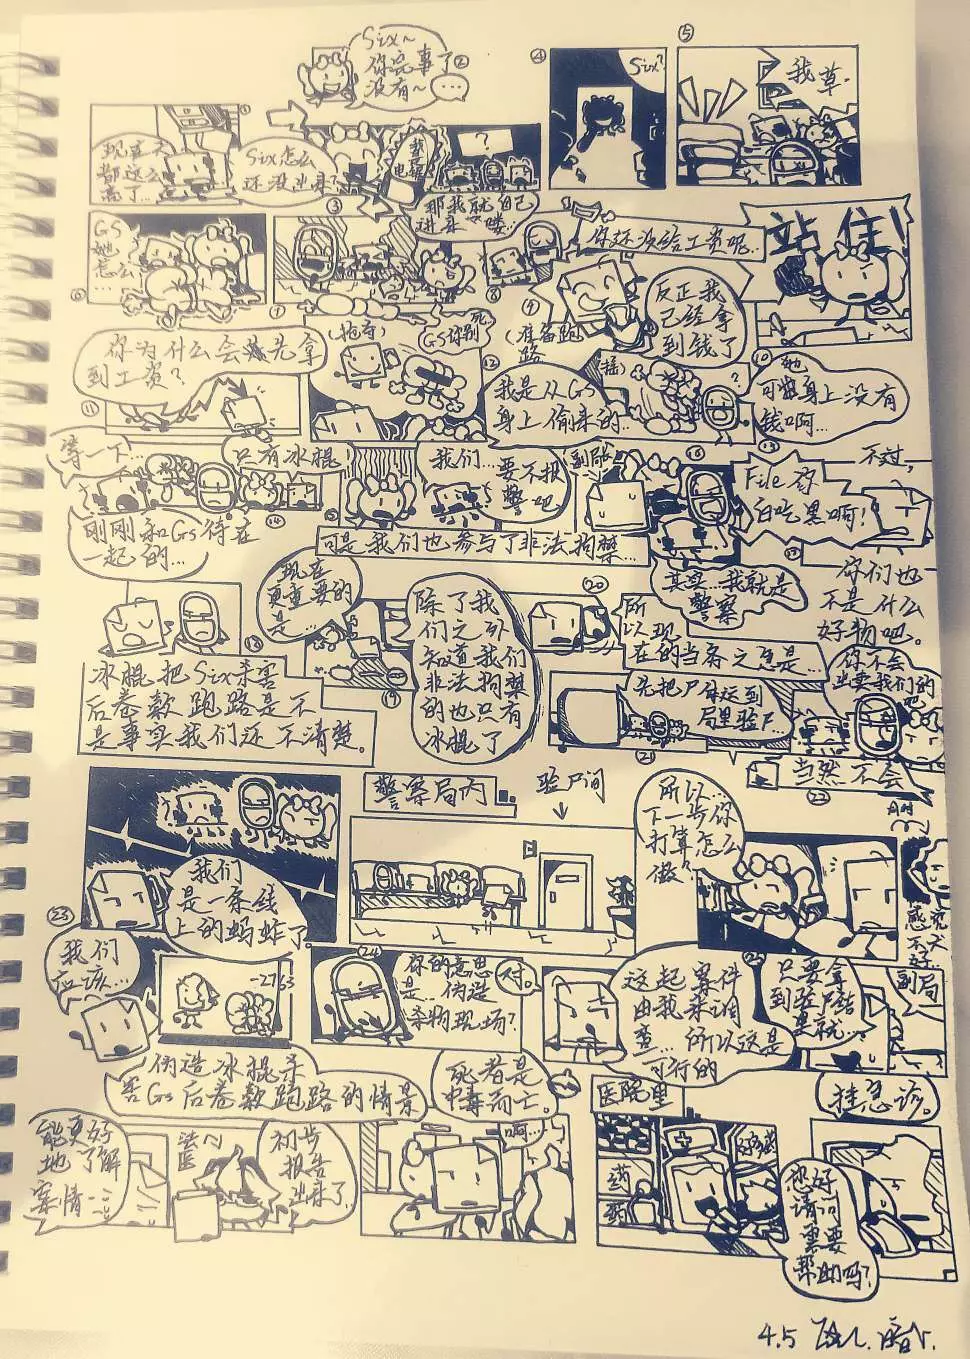 Six~
你完事了
没有~
②
…
④
Six?
⑤
我草.
①
现在天
都这么
高了…
Six怎么
还没出来?
我
电
?
③
那我就自己
进来喽…
你还没给工资呢..
站住!
GS
她
怎么…
⑥
⑦
⑧
⑨
(准备跑
路
反正我
已经拿
到钱了
你为什么会先拿
到工资?
(抢夺)
GS你别
死
⑩
⑪
⑫
我是从GS
身上偷来的…
(摇)
?
她
可能身上没有
钱啊…
⑬
等一下…
只有冰棍!
刚刚和GS待在
一起的…
⑭
⑮
我们…
要不报
警吧
副局
可是我们也参与了非法拘禁…
⑯
File你
白吃黑啊!
不过,
⑰
其实…我就是
警察
你们也
不是什么
好物吧。
现在
更重要的
是…
⑱
冰棍把Six杀害
后卷款跑路是不
是事实我们还不清楚。
除了我
们之外
知道我们
非法拘禁
的也只有
冰棍了
⑲
⑳
所
以现
在的当务之急是…
先把尸体运到
局里验尸
你不会
出卖我们的
吧
㉑
当然不会
㉒
㉓
我们
是一条线
上的蚂蚱了。
警察局内
验尸间
所以…
下一步你
打算怎么
做?
我们
应该…
-2763
㉔
你的意思
是…伪造
杀物现场?
对。
这起案件
由我来调
查…所以这是
可行的
㉕
只要拿
到验尸结
果就…
副局
伪造冰棍杀
害Gs后卷款跑路的情景
死者是
中毒而亡。
啊…
医院里
挂急诊。
能更好
地了解
案情…
法
医
初步
报告
出来了
药
药
您好
请问
需要
帮助吗?
4.5